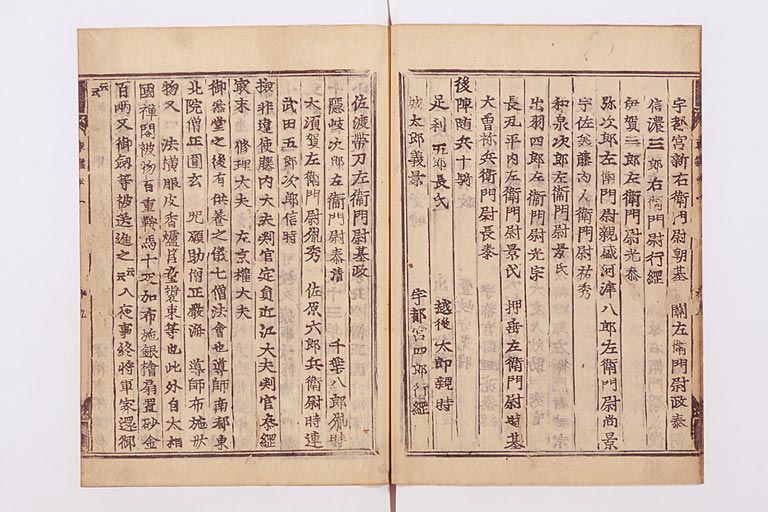 宇都宮新右衛門尉朝基　關左衛門尉政泰
信濃三郎右衛門尉行經
伊賀二郎左衛門尉光泰
弥次郎左衛門尉親盛　河津八郎左衛門尉尚景
宇佐美藤内左衛門尉祐秀
和泉次郎左衛門尉景氏
出羽四郎左衛門尉光宗
長瓦平内左衛門尉景氏　押垂左衛門尉時基
大曾祢兵衛門尉長泰
後陣随兵十騎
足利五郎長氏　越後太郎親時
城太郎義景　宇都宮四郎行經
佐渡帶刀左衛門尉基政
隱岐次郎左衛門尉泰清　千葉八郎胤時
大須賀左衛門尉胤秀　佐原六郎兵衛尉時連
武田五郎次郎信時
撿非違使藤内大夫判官定員　近江大夫判官泰經
最末　修理大夫　左京權大夫
御當堂之後有供養之儀七僧法會也導師南都東
北院僧正圓玄　咒願助僧正嚴海　導師布施
物又　法橫服皮香爐筥
國禪閤被物百重鞍馬十疋加布施銀
百兩又御劔等被送進之云云入夜事終將軍家還御
云云